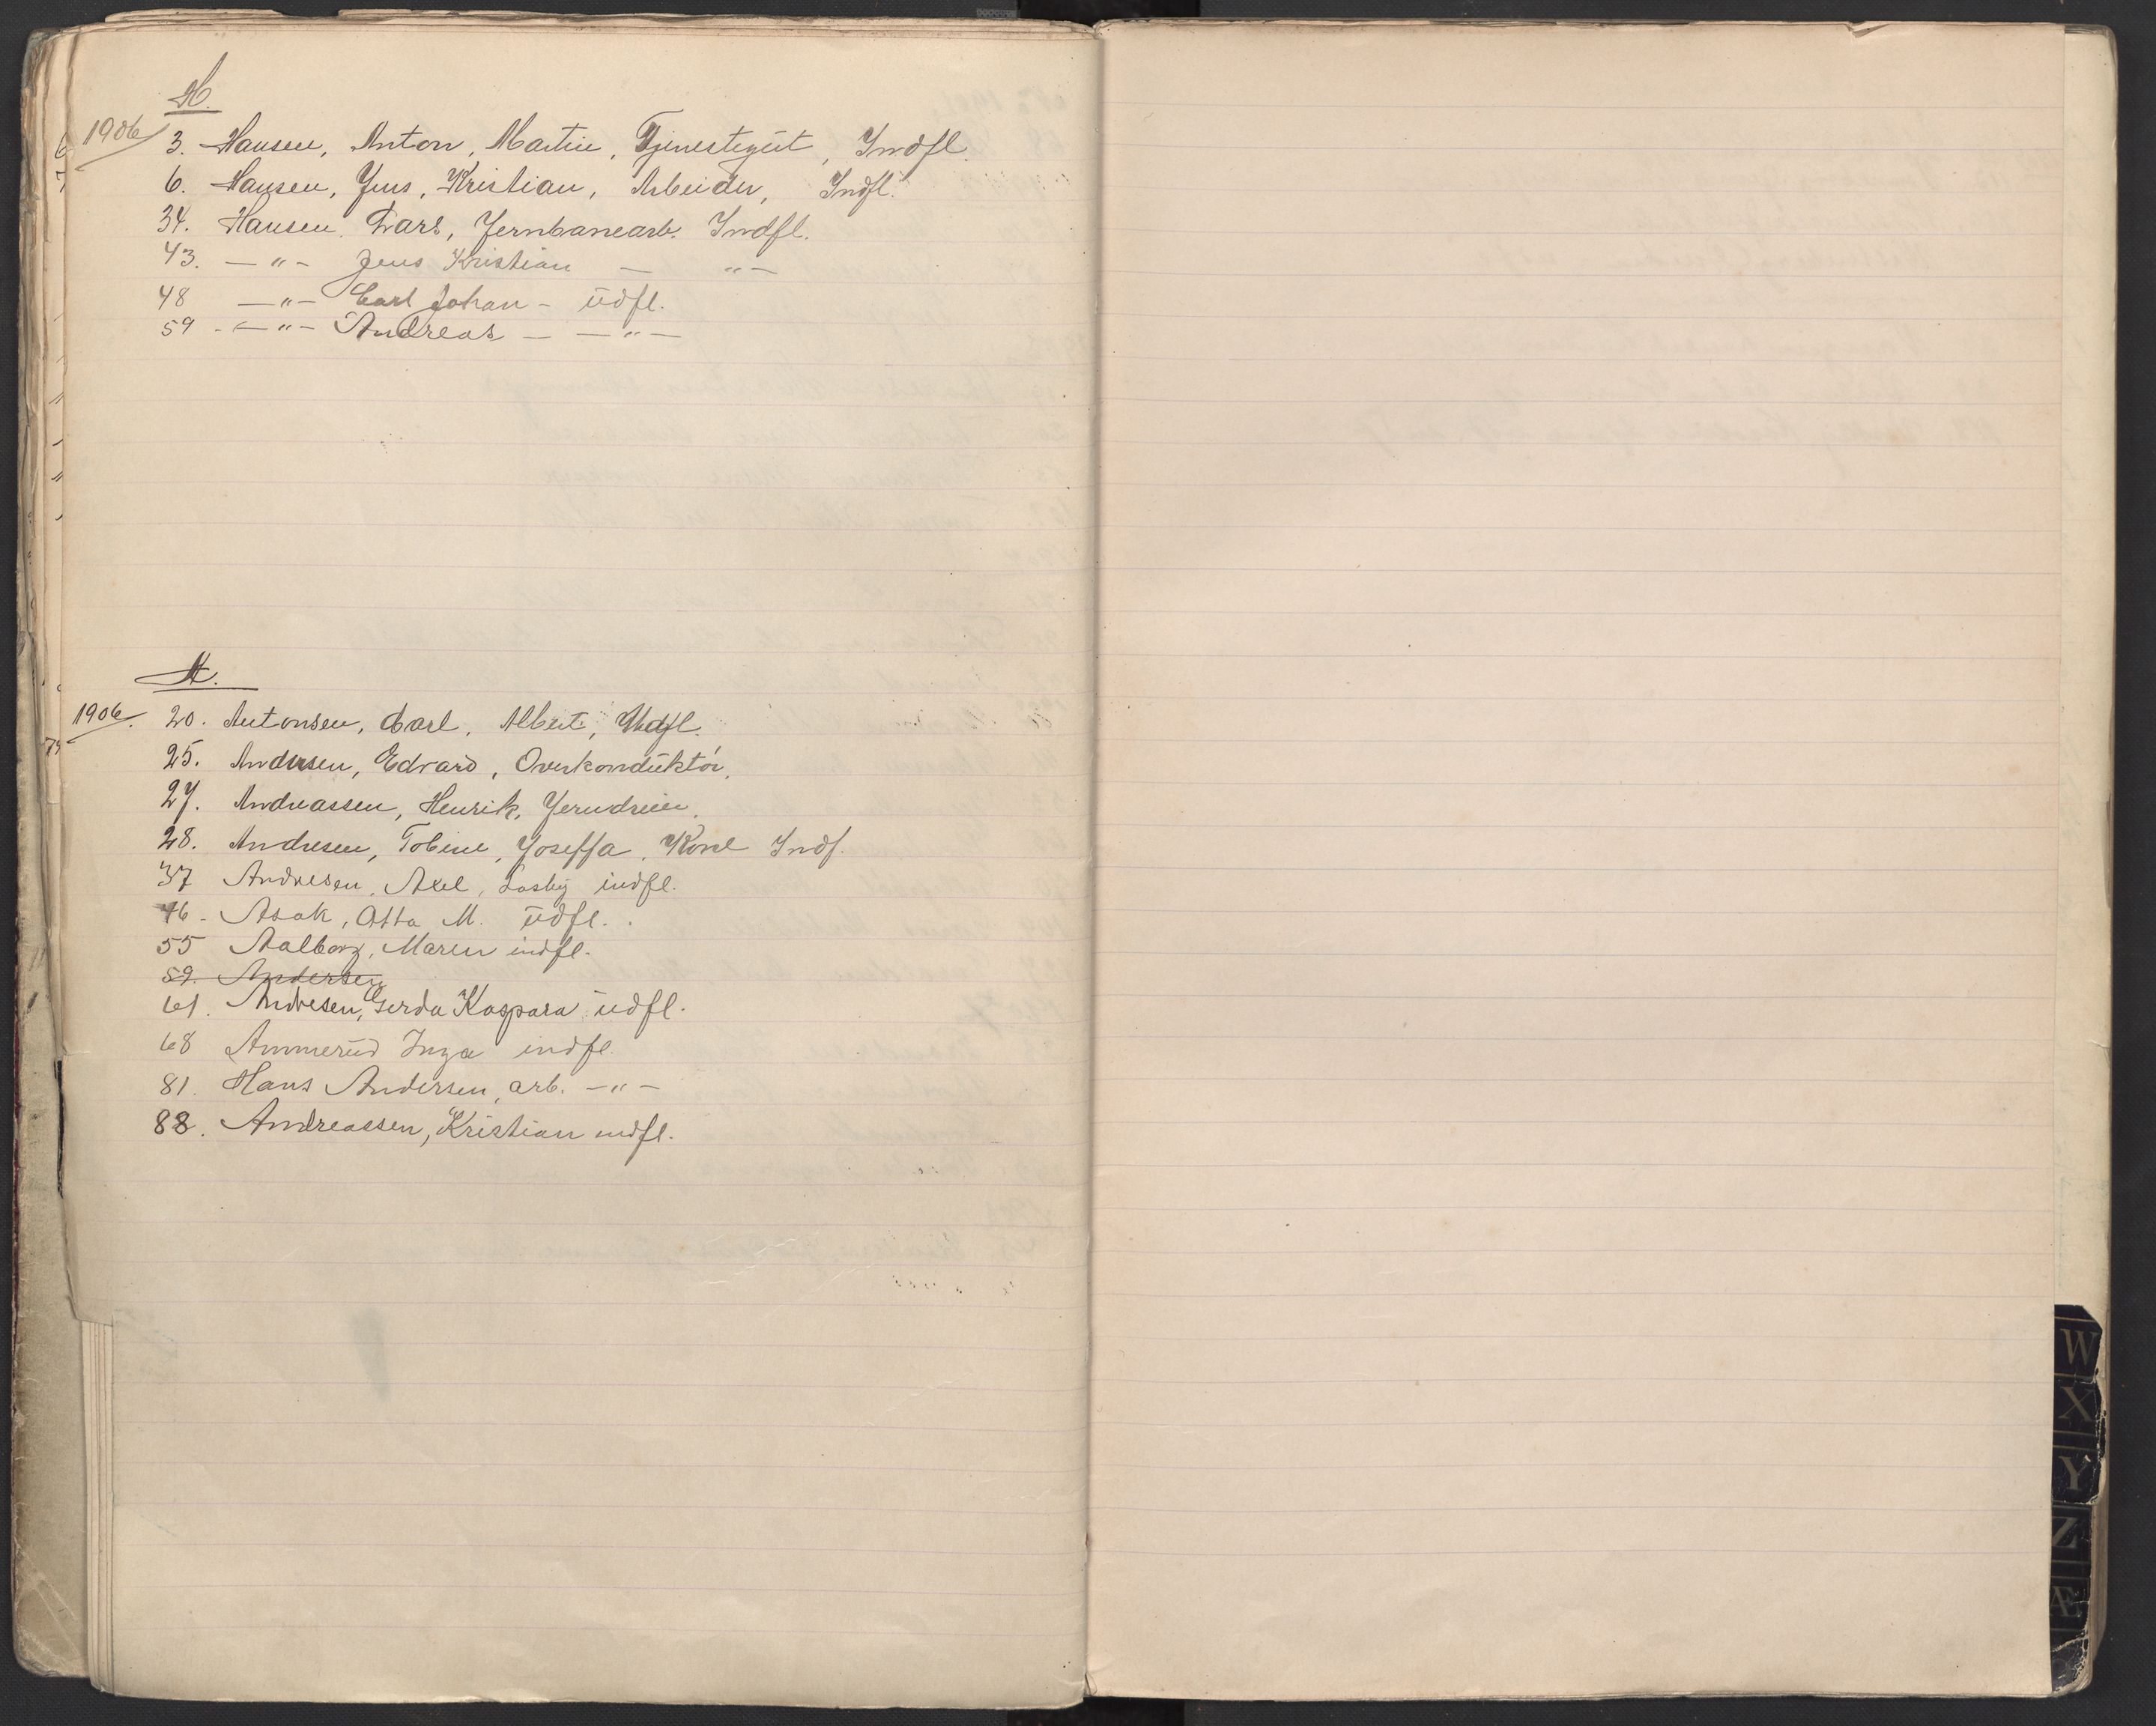 H.
1906 3. Hansen, Anton, Martin, Tjenestegut, Indfl.
6. Hansen, Jens, Kristian, Arbeider, Indfl.
34. Hansen, Lars, Jernbanearb. Indfl.
43. — " — Jens Kristian — " —
48 — " — Carl Johan - udfl.
59 - — " — Andreas — — " —
A.
1906. 20. Antonsen, Carl, Albert, Udfl.
25. Andersen, Edvard, Overkonduktör,
27. Andreassen, Henrik, Jerndreier.
28. Andresen, Tobine, Joseffa, Kone Indf.
37 Andresen, Axel, Losby indfl.
46 - Asak, Otto M. udfl.
55 Aalborg, Maren indfl.
59. Andersen
61. Andresen, Gerda Kaspara udfl.
68 Ammerud Inga indfl.
81. Hans Andersen, arb. — " —
88. Andreassen, Kristian indfl.
W
X
Y
Z
Æ